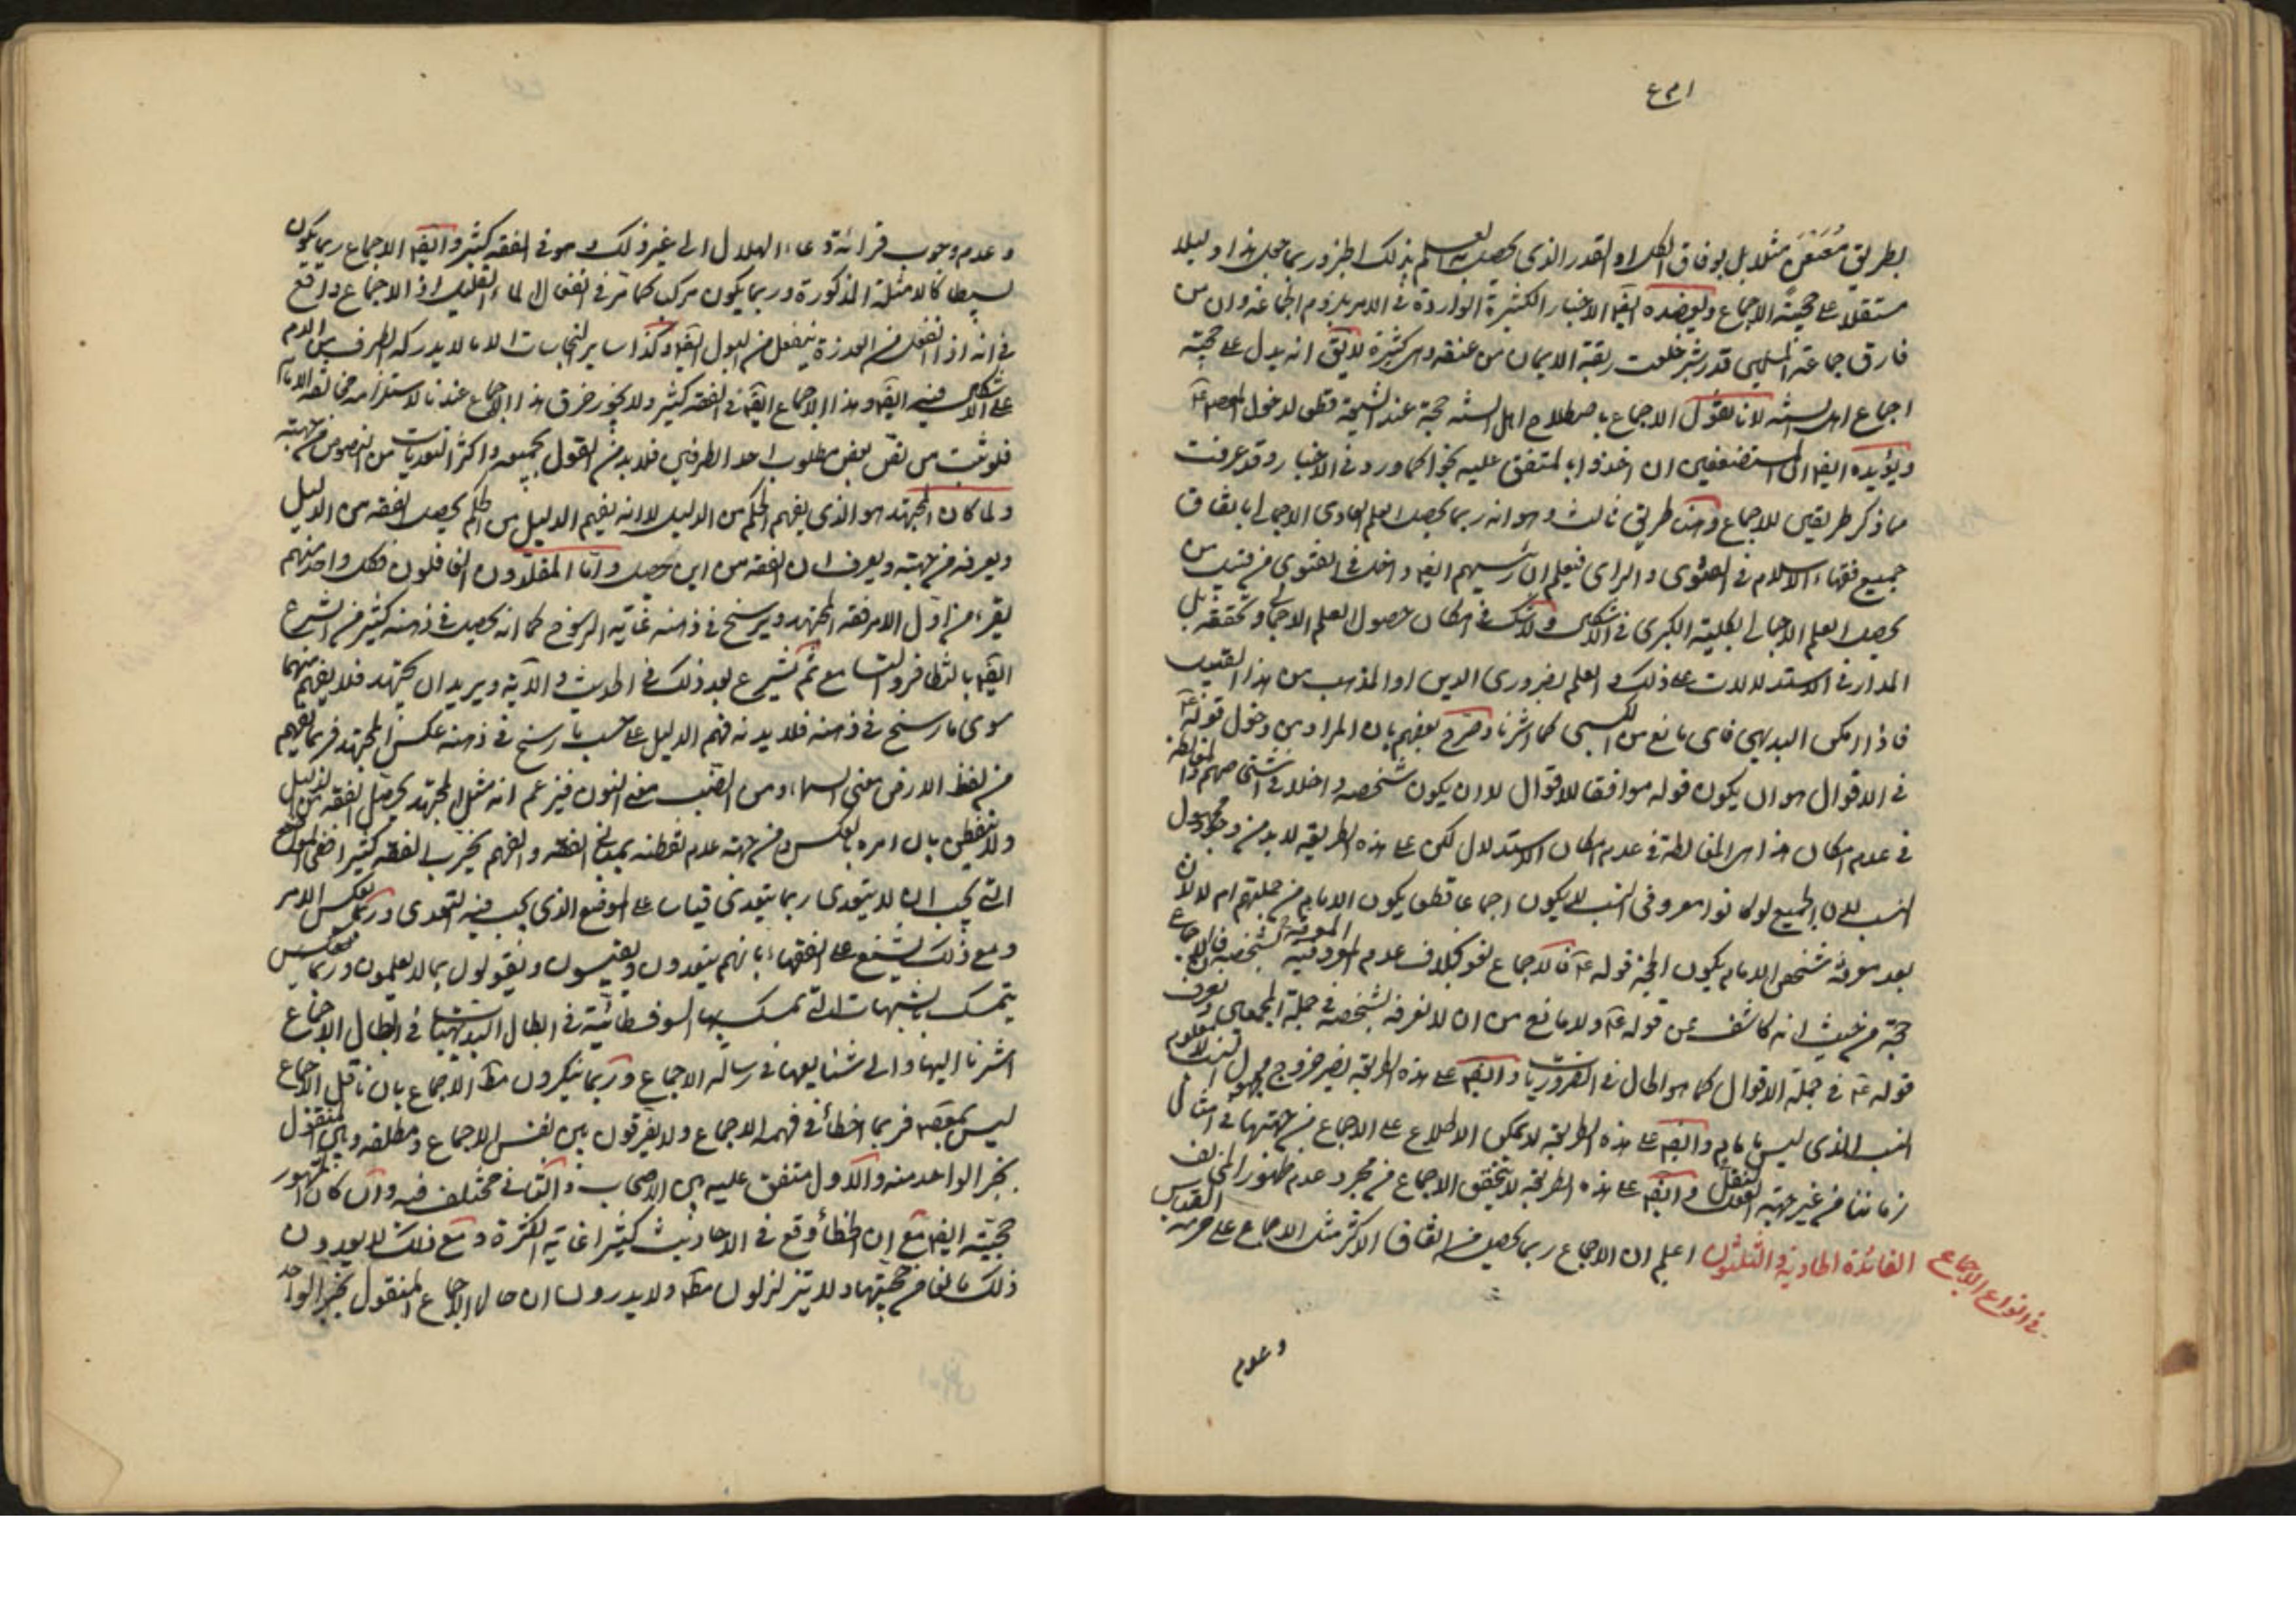 بطريق مُعَنْعَن مثلا بل بوفاق الكل او القدر الذي يحصل العلم بذلك الخبر وربما جعل هذا دليلا
مستقلا على حجية الاجماع ويعضده ايضا الاخبار الكثيرة الواردة في الامر بلزوم الجماعة وان من
فارق جماعة المسلمين قدر شبر خلعت ربقة الايمان من عنقه وهي كثيرة لا يق انه يدل على حجية
اجماع اهل السنة لانا نقول الاجماع باصطلاح اهل السنة حجة عند الشيعة قطعا لدخول المعصوم
ويؤيده ايضا ان المستضعفين ان اخذوا بالمتفق عليه نجوا كما ورد في الاخبار وقد عرفت
مما ذكر طريقين للاجماع وهنا طريق ثالث وهو انه ربما يحصل العلم العادي الاجمالي باتفاق
جميع فقهاء الاسلام في الفتوى والراي فيعلم ان رئيسهم ايضا داخل في الفتوى من قبيل من
يحصل العلم الاجمالي بكلية الكبرى في الاشكال ولا شك في امكان حصول العلم الاجمالي وتحققه بل
المدار في الاستدلالات على ذلك والعلم بضروري الدين او المذهب من هذا القبيل
فاذا امكن البديهي فاي مانع من الكسبي كما اشرنا وصرح بعضهم بان المراد من دخول قوله
في الاقوال هو ان يكون قوله موافقا للاقوال لا ان يكون شخصه داخلا في اشخاصهم والمغالطة
في عدم امكان هذا هي المغالطة في عدم امكان الاستدلال لكن على هذه الطريقة لا بد من وجود مجهول
النسب لان الجميع لو كانوا معروفي النسب لا يكون اجماعا قطعا يكون الامام من جملتهم ام لا لان
بعد معرفة شخص الامام يكون الحجة قوله فالاجماع لغو بخلاف عدم المعروفية المعرفة بشخصه فان الاجماع
حجة من حيث انه كاشف عن قوله ولا مانع من ان لا نعرفه بشخصه في جملة المجمعين ونعرف
قوله في جملة الاقوال كما هو الحال في الضروريات وايضا على هذه الطريقة يضر خروج مجهول النسب لا معلوم
النسب الذي ليس بامام وايضا على هذه الطريقة لا يمكن الاطلاع على الاجماع من جهتها في امثال
زماننا من غير جهة النقل وايضا على هذه الطريقة لا يتحقق الاجماع من مجرد عدم ظهور المخالف
الفائدة الحادية والثلثون اعلم ان الاجماع ربما يحصل من اتفاق الاكثر مثل الاجماع على حرمة القياس
في انواع الاجماع
وعدم
وعدم وجوب قرائة دعاء الهلال الى غير ذلك وهو في الفقه كثير وايضا الاجماع ربما يكون
بسيطا كالامثلة المذكورة وربما يكون مركبا كما مر في انفعال الماء القليل اذ الاجماع واقع
في انه اذا انفعل من العذرة ينفعل من البول ايضا وكذا ساير النجاسات الا ما لا يدركه الطرف من الدم
على الاشكال فيه ايضا وهذا الاجماع ايضا في الفقه كثير ولا يجوز خرق هذا الاجماع عندنا لاستلزامه مخالفة الامام
فلو ثبت من نص بعض مطلوب احد الطرفين فلا بد من القول بجميعه واكثر التعديات من النصوص من جهته
ولما كان المجتهد هو الذي يفهم الحكم من الدليل لا انه يفهم الدليل من الحكم يحصل الفقه من الدليل
ويعرفه من جهته ويعرف ان الفقه من اين يحصل واما المقلدون الغافلون فكل واحد منهم
يقرء من اول الامر فقه المجتهد ويرسخ في ذهنه غاية الرسوخ كما انه يحصل في ذهنه كثير من الشرع
ايضا بالتظافر والتسامع ثم يشرع بعد ذلك في الحديث والآية ويريد ان يجتهد فلا يفهم منهما
سوى ما رسخ في ذهنه فلا بد له فهم الدليل على حسب ما رسخ في ذهنه عكس المجتهد فربما يفهم
من لفظ الارض معنى السماء ومن الضب معنى النون فيزعم انه مثل المجتهد يحصل الفقه من الدليل
ولا يتفطن بان امره بالعكس ومن جهة عدم تفطنه بمبدئ الفقه والفهم يخرب الفقه كثيرا ففي المواضع
التي يجب ان لا يتعدى ربما يتعدى قياسا على الموضع الذي يجب فيه التعدي وربما يعكس الامر
ومع ذلك يشنع على الفقهاء بانهم يتعدون ويقيسون ويقولون بما لا يعلمون وربما يعكس
يتمسك بالشبهات التي تمسك بها السوفسطائية في ابطال البديهيات في ابطال الاجماع
اشرنا اليها والى شنايعها في رسالة الاجماع وربما ينكرون مط الاجماع بان ناقل الاجماع
ليس بمعصوم فربما اخطأ في فهم الاجماع ولا يفرقون بين نفس الاجماع ومطلقه وبين المنقول
بخبر الواحد منه والاول متفق عليه بين الاصحاب والثاني مختلف فيه وان كان المشهور
حجيته ايضا مع ان الخطأ وقع في الاحاديث كثيرا غاية الكثرة ومع ذلك لا يعدون
ذلك مانعا من حجيتها ولا يتزلزلون مط ولا يدرون ان حال الاجماع المنقول بخبر الواحد